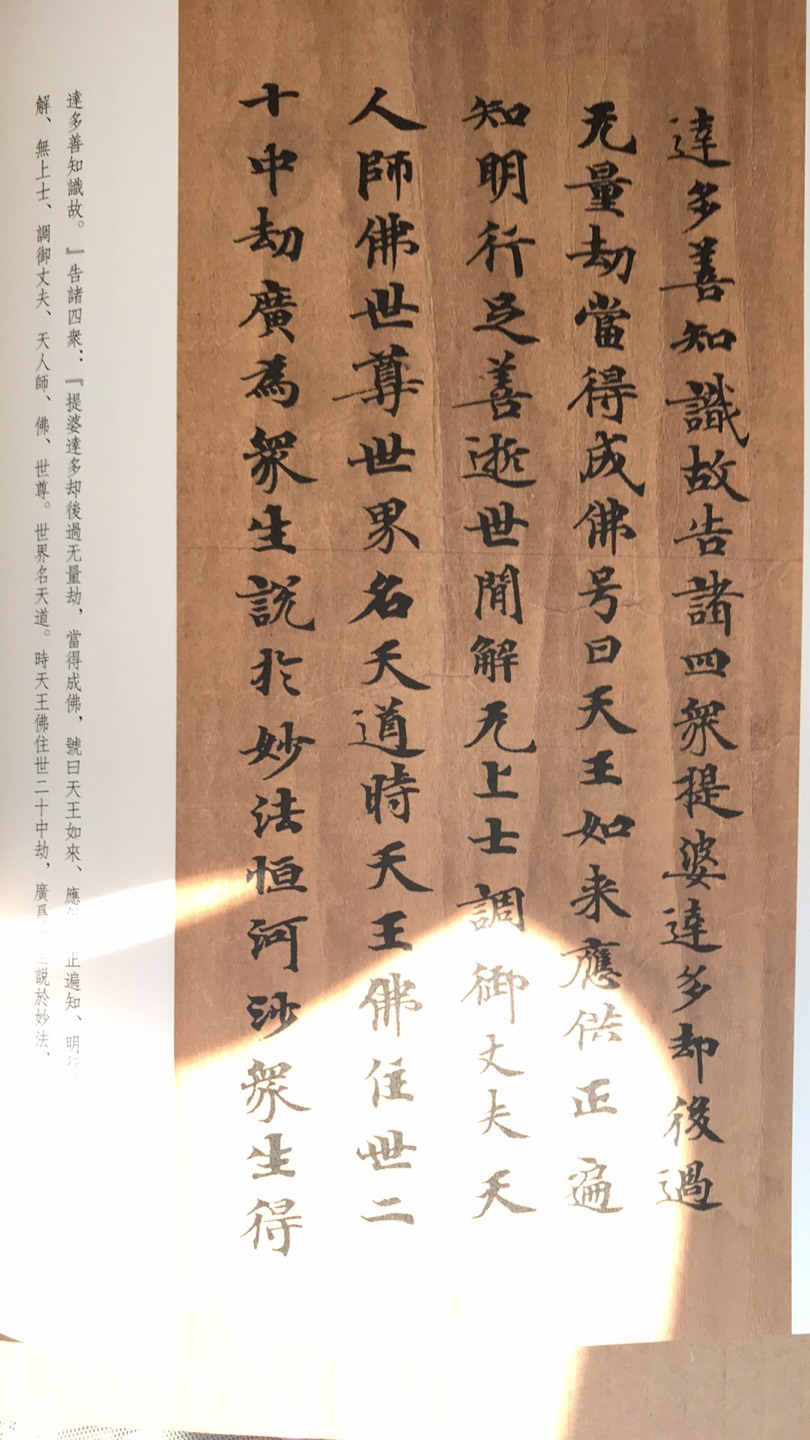 達多善知識故告諸四衆提婆達多却後過
无量劫當得成佛号曰天王如来應供正遍
知明行足善逝世間解无上士調御丈夫天
人師佛世尊世界名天道時天王佛住世二
十中劫廣為衆生説於妙法恒河沙衆生得
達多善知識故。』告諸四衆：『提婆達多却後過无量劫，當得成佛，號曰天王如來、應 正遍知、明
解、無上士、調御丈夫、天人師、佛、世尊。世界名天道。時天王佛住世二十中劫，廣 説於妙法、